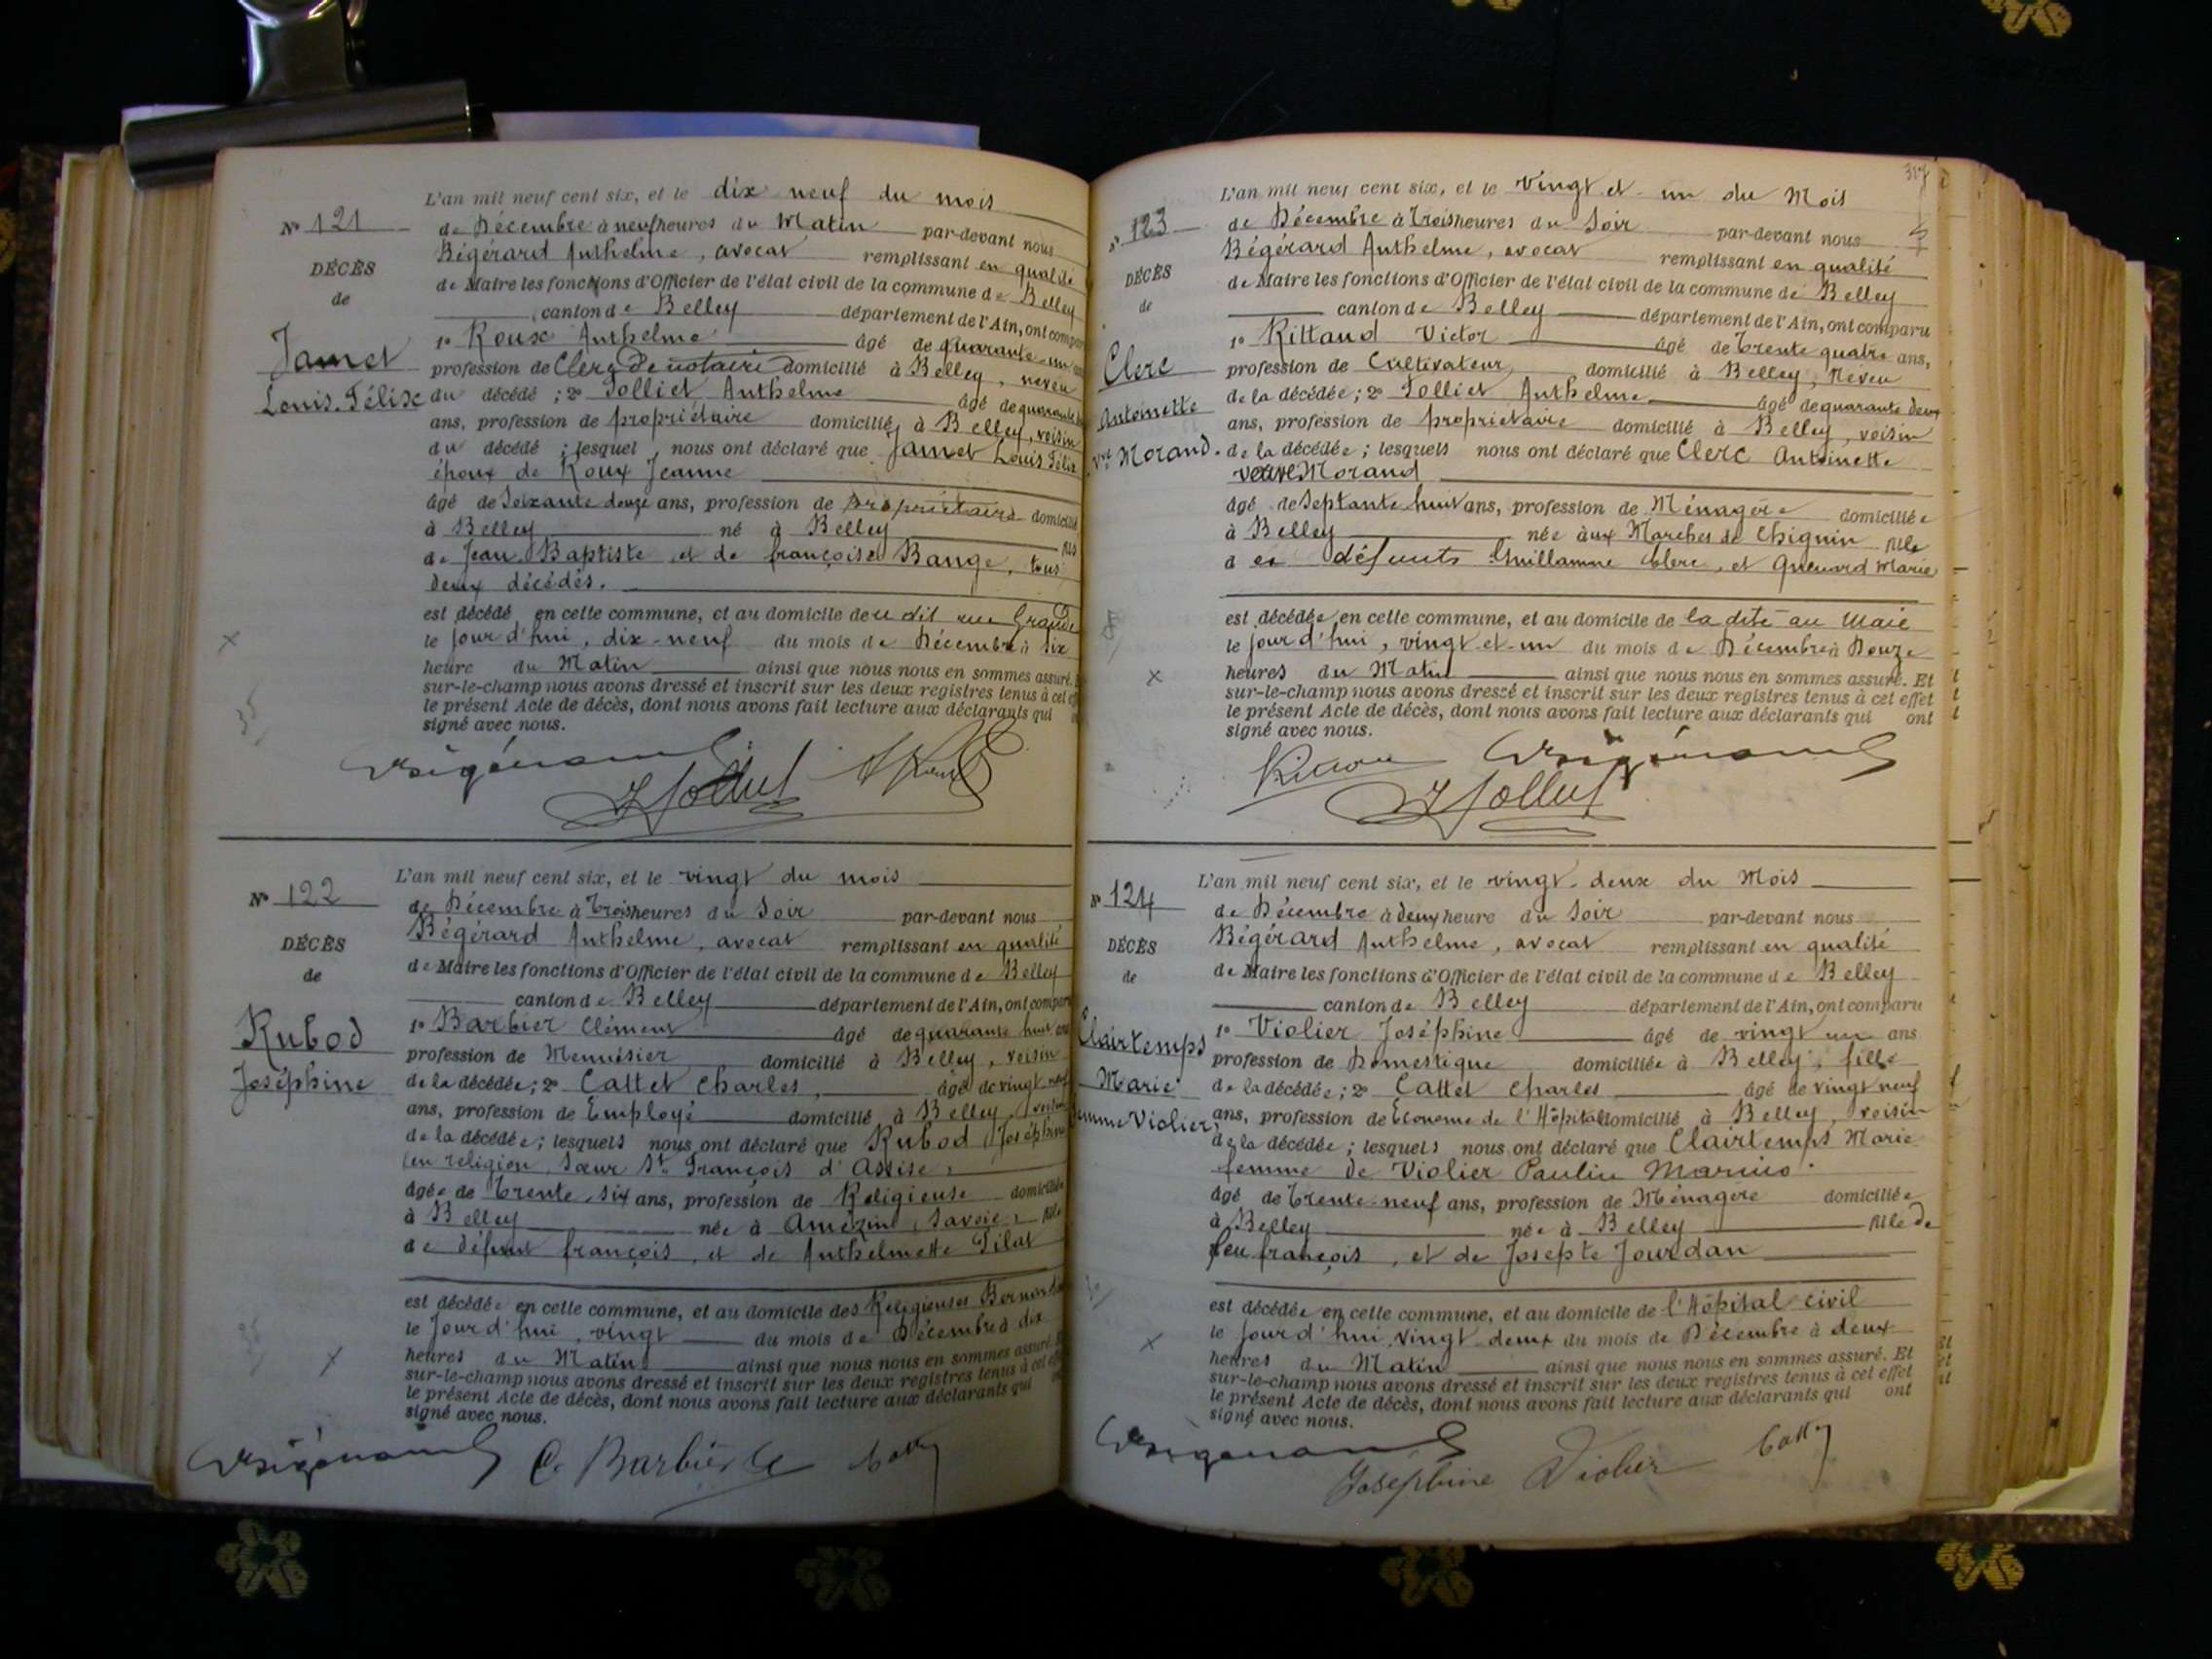 Nº 121
DÉCÈS
de
Jamet
Louis Félix
L'an mil neuf cent six, et le dix neuf du mois
de Décembre à neuf heures du Matin par-devant nous
Bégérard Anthelme, avocat remplissant en qualité
de Maire les fonctions d'Officier de l'état civil de la commune de Belley
canton de Belley département de l'Ain, ont compar
1º Roux Anthelme âgé de quarante-un
profession de Clerc de notaire domicilié à Belley, neveu
du décédé ; 2º Jolliet Anthelme âgé de quarante
ans, profession de propriétaire domicilié à Belley, voisin
du décédé ; lesquel nous ont déclaré que Jamet Louis Félix
époux de Roux Jeanne
âgé de Soixante douze ans, profession de propriétaire domicilié
à Belley né à Belley fils
de Jean Baptiste et de françoise Bange, tous
deux décédés.
est décédé en cette commune, et au domicile de u dit rue Grande
le jour d'hui, dix-neuf du mois de Décembre à six
heure du Matin ainsi que nous nous en sommes assuré.
sur-le-champ nous avons dressé et inscrit sur les deux registres tenus à cet
le présent Acte de décès, dont nous avons fait lecture aux déclarants qui
signé avec nous.
Nº 122
DÉCÈS
de
Rubod
Joséphine
L'an mil neuf cent six, et le vingt du mois
de Décembre à trois heures du Soir par-devant nous
Bégérard Anthelme, avocat remplissant en qualité
de Maire les fonctions d'Officier de l'état civil de la commune de Belley
canton de Belley département de l'Ain, ont compar
1º Barbier Clément âgé de quarante huit ans
profession de Menuisier domicilié à Belley, voisin
de la décédée ; 2º Cattet Charles, âgé de vingt neuf
ans, profession de Employé domicilié à Belley, voisin
de la décédée ; lesquels nous ont déclaré que Rubod Joséphine
(en religion, Sœur St François d'Assise,
âgée de trente six ans, profession de Religieuse domiciliée
à Belley née à Amézin (Savoie) fille
de défunt françois, et de Anthelmette Pilat
est décédée en cette commune, et au domicile des Religieuses
le jour d'hui, vingt du mois de Décembre à dix
heures du Matin ainsi que nous nous en sommes assuré.
sur-le-champ nous avons dressé et inscrit sur les deux registres tenus à cet
le présent Acte de décès, dont nous avons fait lecture aux déclarants qui
signé avec nous.
C. Barbier
Nº 123
DÉCÈS
de
Clerc
Antoinette
Vve Morand.
L'an mil neuf cent six, et le vingt et un du Mois
de Décembre à trois heures du Soir par-devant nous
Bégérard Anthelme, avocat remplissant en qualité
de Maire les fonctions d'Officier de l'état civil de la commune de Belley
canton de Belley département de l'Ain, ont comparu
1º Rittaud Victor âgé de trente quatre ans,
profession de Cultivateur domicilié à Belley, Neveu
de la décédée ; 2º Jolliet Anthelme âgé de quarante deux
ans, profession de propriétaire domicilié à Belley, voisin
de la décédée ; lesquels nous ont déclaré que Clerc Antoinette
veuve Morand
âgé de Septante huit ans, profession de Ménagère domiciliée
à Belley née aux Marches de Chignin fille
d es défunts Guillaume Clerc, et Quenard Marie
est décédée en cette commune, et au domicile de la dite au
le jour d'hui, vingt-et-un du mois de Décembre à Douze
heures du Matin ainsi que nous nous en sommes assuré. Et
sur-le-champ nous avons dressé et inscrit sur les deux registres tenus à cet effet
le présent Acte de décès, dont nous avons fait lecture aux déclarants qui ont
signé avec nous.
Nº 124
DÉCÈS
de
Clairtemps
Marie
femme Violier
L'an mil neuf cent six, et le vingt-deux du Mois
de Décembre à deux heure du Soir par-devant nous
Bégérard Anthelme, avocat remplissant en qualité
de Maire les fonctions d'Officier de l'état civil de la commune de Belley
canton de Belley département de l'Ain, ont comparu
1º Violier Joséphine âgé de vingt un ans
profession de Domestique domiciliée à Belley, fille
de la décédée ; 2º Cattet Charles âgé de vingt neuf
ans, profession de Econome de l'Hôpital domicilié à Belley, voisin
de la décédée ; lesquels nous ont déclaré que Clairtemps Marie
femme de Violier Paulin Marius.
âgé de trente-neuf ans, profession de Ménagère domiciliée
à Belley née à Belley fille de
feu françois, et de Josepte Jourdan
est décédée en cette commune, et au domicile de l'Hôpital civil
le jour d'hui vingt-deux du mois de Décembre à deux
heures du Matin ainsi que nous nous en sommes assuré. Et
sur-le-champ nous avons dressé et inscrit sur les deux registres tenus à cet effet
le présent Acte de décès, dont nous avons fait lecture aux déclarants qui ont
signé avec nous.
Joséphine Violier